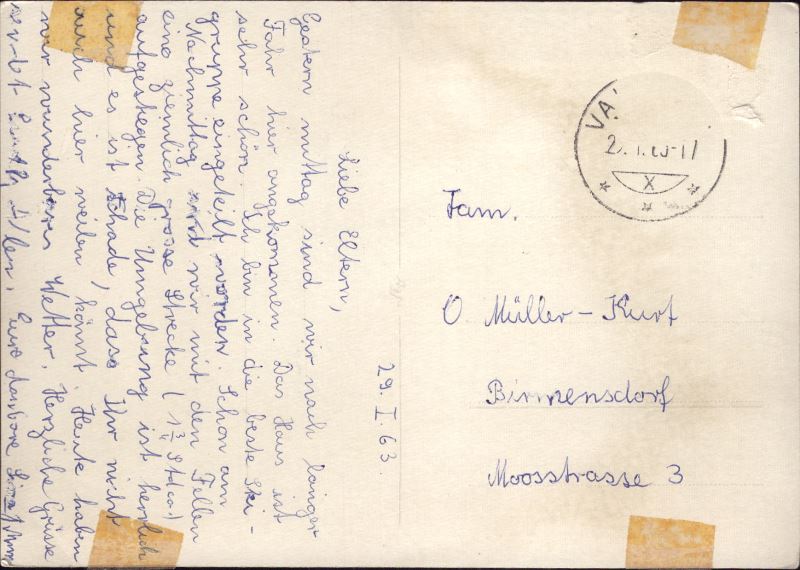 29. I. 63.
Liebe Eltern,
Gestern mittag sind wir nach langer
Fahr hier angekommen. Das Haus ist
sehr schön. Ich bin in die beste Ski-
gruppe eingeteilt worden. Schon am
Nachmittag sind wir mit den Fellen
eine ziemlich grosse Strecke (1¾ Std.)
aufgestiegen. Die Umgebung ist herrlich
und es ist schade, dass Ihr nicht
auch hier weilen könnt. Heute haben
wir wunderbares Wetter. Herzliche Grüsse
Eure dankbare
VA
Fam.
O Müller-Kurt
Birmensdorf
Moosstrasse 3